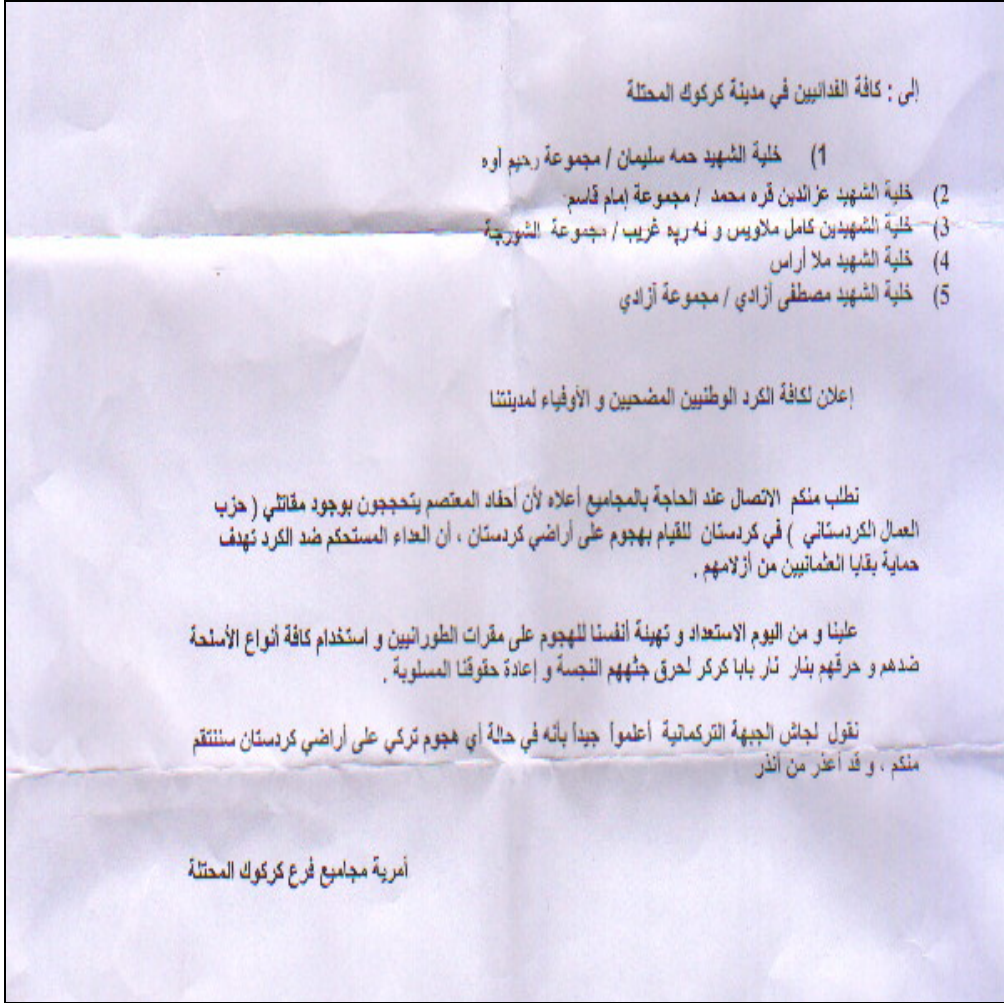 إلى : كافة الفدائيين في مدينة كركوك المحتلة
1) خلية الشهيد حمه سليمان / مجموعة رحيم أوه
2) خلية الشهيد عزالدين قره محمد / مجموعة إمام قاسم
3) خلية الشهيدين كامل ملاويس و نه ريه غريب / مجموعة الشورجة
4) خلية الشهيد ملا أراس
5) خلية الشهيد مصطفى أزادي / مجموعة أزادي
إعلان لكافة الكرد الوطنيين المضحيين و الأوفياء لمدينتنا
نطلب منكم الاتصال عند الحاجة بالمجاميع أعلاه لأن أحفاد المعتصم يتحججون بوجود مقاتلي ( حزب
العمال الكردستاني ) في كردستان للقيام بهجوم على أراضي كردستان ، أن العداء المستحكم ضد الكرد تهدف
حماية بقايا العثمانيين من أزلامهم .
علينا و من اليوم الاستعداد و تهيئة أنفسنا للهجوم على مقرات الطورانيين و استخدام كافة أنواع الأسلحة
ضدهم و حرقهم بنار نار بابا كركر لحرق جثههم النجسة و إعادة حقوقنا المسلوبة .
نقول لجاش الجبهة التركمانية أعلموا جيداً بأنه في حالة أي هجوم تركي على أراضي كردستان سننتقم
منكم ، و قد أعذر من أنذر
أمرية مجاميع فرع كركوك المحتلة